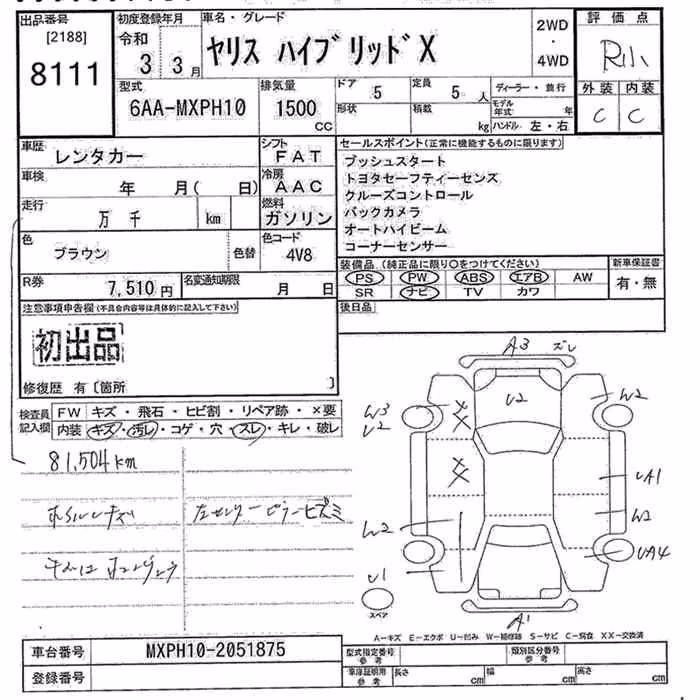 出品番号 [2188] 8111
初度登録年月 令和 3 3月
車名・グレード ヤリス ハイブリッド X
2WD ・ 4WD
評価点
外装 内装
C C
型式 6AA-MXPH10
排気量 1500 CC
ドア 5
定員 5 人
ディーラー・並行
形状
積載 kg
モデル年式 年
ハンドル 左・右
車歴 レンタカー
シフト FAT
セールスポイント(正常に機能するものに限ります)
車検 年 月( 日)
冷房 AAC
走行 万 千 km
燃料 ガソリン
プッシュスタート
トヨタセーフティーセンズ
クルーズコントロール
バックカメラ
オートハイビーム
コーナーセンサー
色 ブラウン 色替
色コード 4V8
装備品(純正品に限り○をつけてください)
新車保証書 有・無
PS PW ABS エアB AW
SR ナビ TV カワ
R券 7,510 円
名変通知期限 月 日
後日品
注意事項申告欄(不具合内容等は具体的に記入して下さい)
初出品
修復歴 有〔箇所 〕
検査員記入欄
FW キズ・飛石・ヒビ割・リペア跡・×要
内装 キズ・汚レ・コゲ・穴・スレ・キレ・破レ
81,504km
A3 ズレ
U2
W3
U2
W2
UA1
W2
W2
UA4
U1
スペア
A1
A-キズ E-エクボ U-凹み W-補修跡 S-サビ C-腐食 XX-交換済
車台番号 MXPH10-2051875
登録番号
型式指定番号 参考
類別区分番号 参考
車庫証明用 参考 長さ cm 幅 cm 高さ cm